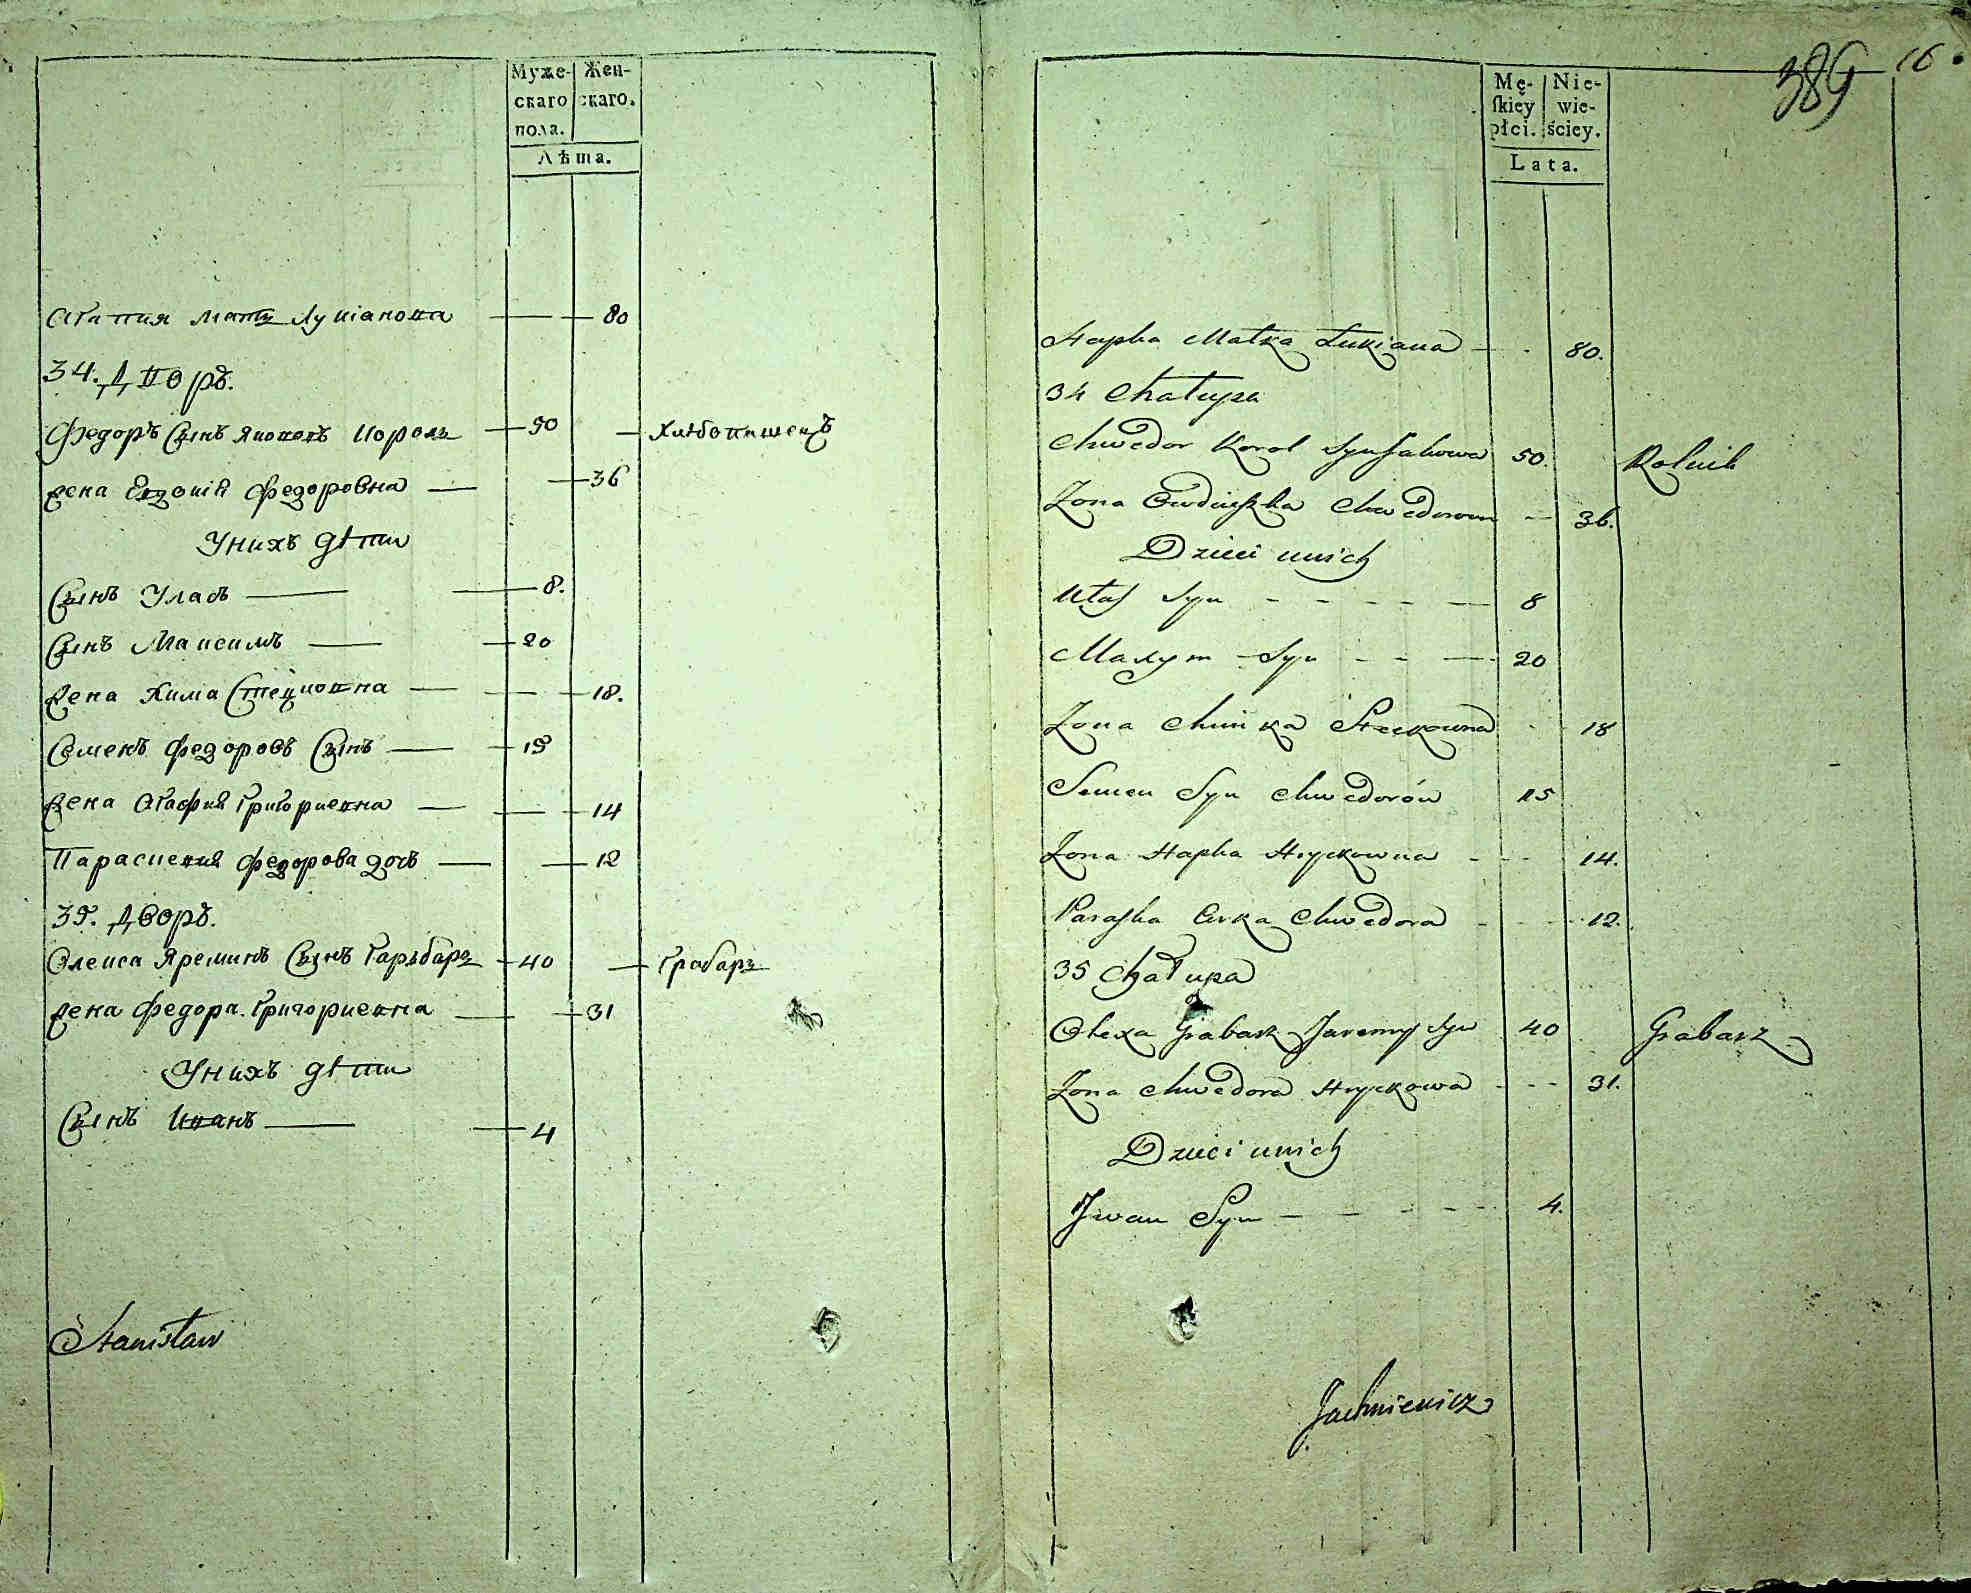 Муже- Жен-
скаго скаго.
пола.
Лѣта.
Агапия мать Лукіанова 80
34. Дворъ.
Федоръ Сынъ Яковевъ Король 50 Хлѣбопашецъ
Жена Евдокія Федоровна 36
У нихъ дѣти
Сынъ Уласъ 8.
Сынъ Максимъ 20
Жена Хима Стецковна 18.
Семенъ Федоровъ Сынъ 15
Жена Агафия Григориевна 14
Параскевия Федорова дочь 12
35. Дворъ.
Олекса Яреминъ Сынъ Гарбарь 40 Грабарь
Жена Федора Григориевна 31
У нихъ дѣти
Сынъ Иванъ 4
Stanisław
389 16
Mę- Nie-
skiey wie-
płci. ściey.
Lata.
Hapka Matka Łukiana 80.
34 Chałupa
Chwedor Korol Syn Jakowa 50. Rolnik
Żona Owdiuszka Chwedorowa 36.
Dzieci unich
Ułas Syn 8
Maxym Syn 20
Żona Chimka Steckowna 18
Semen Syn Chwedorów 15
Żona Hapka Hryckowna 14.
Paraska Curka Chwedora 12.
35 Chałupa
Olexa Grabarz Jaremy Syn 40 Grabarz
Żona Chwedora Hryckowa 31.
Dzieci unich
Jwan Syn 4.
Jachniewicz